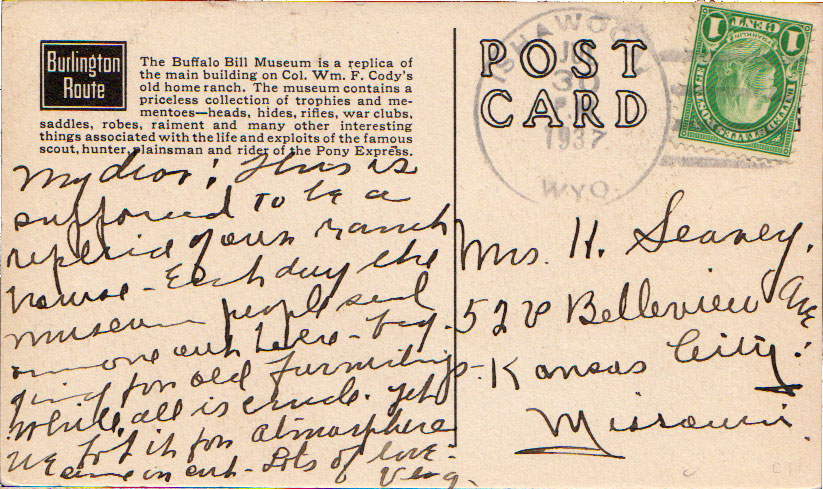 Burlington
Route
The Buffalo Bill Museum is a replica of
the main building on Col. Wm. F. Cody's
old home ranch. The museum contains a
priceless collection of trophies and me-
mentoes—heads, hides, rifles, war clubs,
saddles, robes, raiment and many other interesting
things associated with the life and exploits of the famous
scout, hunter, plainsman and rider of the Pony Express.
My dear! This is
supposed to be a
replica of our ranch
house - Each day the
museum people send
someone out here - beg-
ging for old furnishings -
While all is crude. Yet
we for atmosphere
Lots of love -
POST
CARD
ISHAWOOA
30
1937
WYO.
1 CENT 1
Mrs. H. Seaney.
528 Belleview Ave
Kansas City!
Missouri.